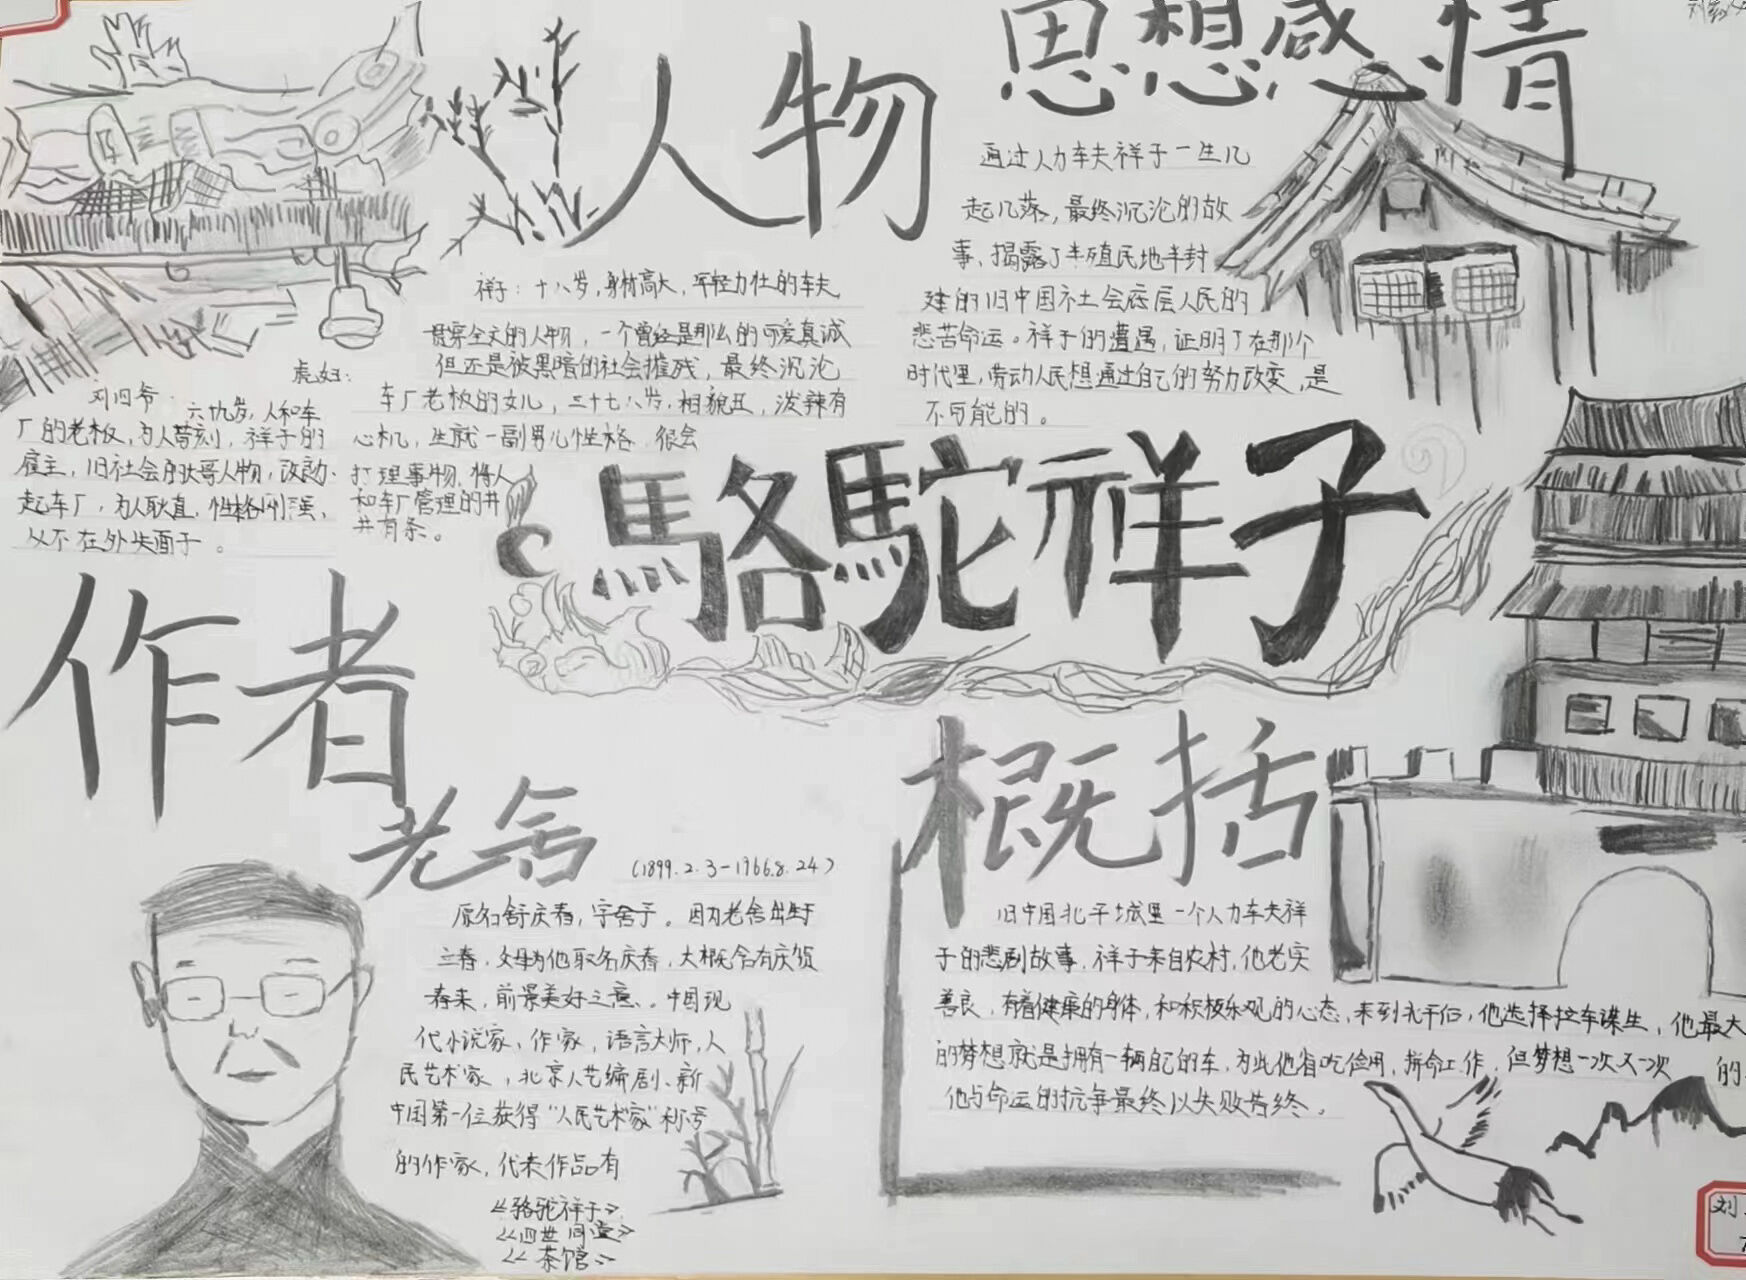 人物
祥子：十八岁，身材高大，年轻力壮的车夫
贯穿全文的人物，一个曾经是那么的可爱真诚
但还是被黑暗的社会摧残，最终沉沦
虎妞：
车厂老板的女儿，三十七八岁，相貌丑，泼辣有
心机，生就一副男儿性格，很会
打理事物，将人
和车厂管理的井
井有条。
刘四爷：
六十九岁，人和车
厂的老板，为人苛刻，祥子的
雇主，旧社会的
人物，改
起车厂，为人耿直，性格刚强，
从不在外失面子。
思想感情
通过人力车夫祥子一生几
起几落，最终沉沦的故
事，揭露了半殖民地半封
建的旧中国社会底层人民的
悲苦命运。祥子的遭遇，证明了在那个
时代里，劳动人民想通过自己的努力改变，是
不可能的。
駱駝祥子
作者
老舍
（1899.2.3-1966.8.24）
原名舒庆春，字舍予。因为老舍出生于
立春，父母为他取名庆春，大概含有庆贺
春来，前景美好之意。中国现
代小说家、作家，语言大师，人
民艺术家，北京人艺编剧、新
中国第一位获得“人民艺术家”称号
的作家，代表作品有
《骆驼祥子》
《四世同堂》
《茶馆》
概括
旧中国北平城里一个人力车夫祥
子的悲剧故事，祥子来自农村，他老实
善良，有着健康的身体，和积极乐观的心态，来到北平后，他选择拉车谋生，他最大
的梦想就是拥有一辆自己的车，为此他省吃俭用，拼命工作，但梦想一次又一次 的
他与命运的抗争最终以失败告终。
刘